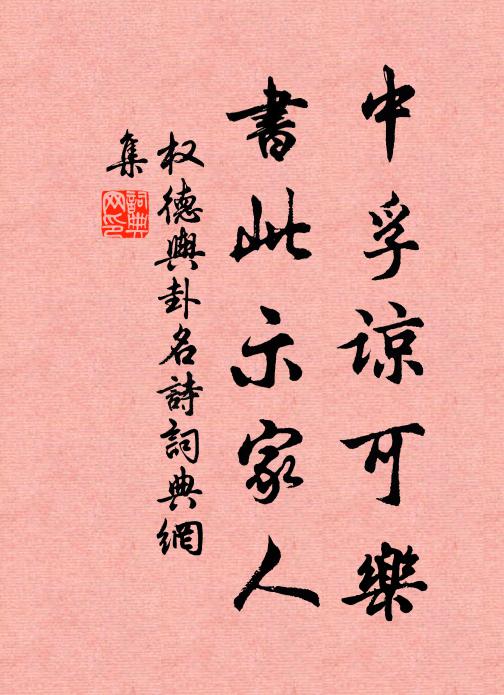 中孚諒可樂
書此示家人
权德輿卦名詩詞典網
集
詞典网印